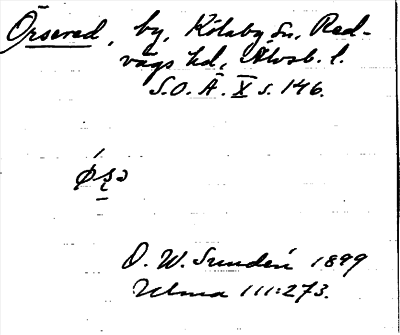 Örsered, by, Kölaby sn, Red-
vägs hd, Älvsb. l.
S.O.Ä. X s. 146.
O. W. Sundén 1899
Ulma 111:273.